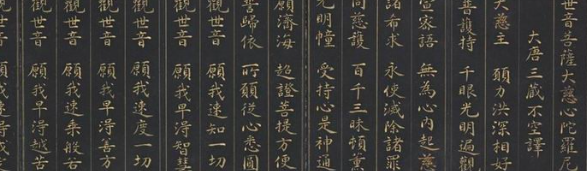 世音菩薩大悲心陀羅尼
大唐三藏不空譯
大悲主 願力洪深相好
普護持 千眼光明遍觀
宣密語 無為心內起悲
諸希求 永使滅除諸罪
同慈護 百千三昧頓薰
光明幢 受持心是神通
願濟海 超證菩提方便
誓歸依 所願從心悉圓
觀世音 願我速知一切
觀世音 願我早得智慧
觀世音 願我速度一切
觀世音 願我早得善方
觀世音 願我速乘般若
觀世音 願我早得越苦
觀世音 願我速得戒